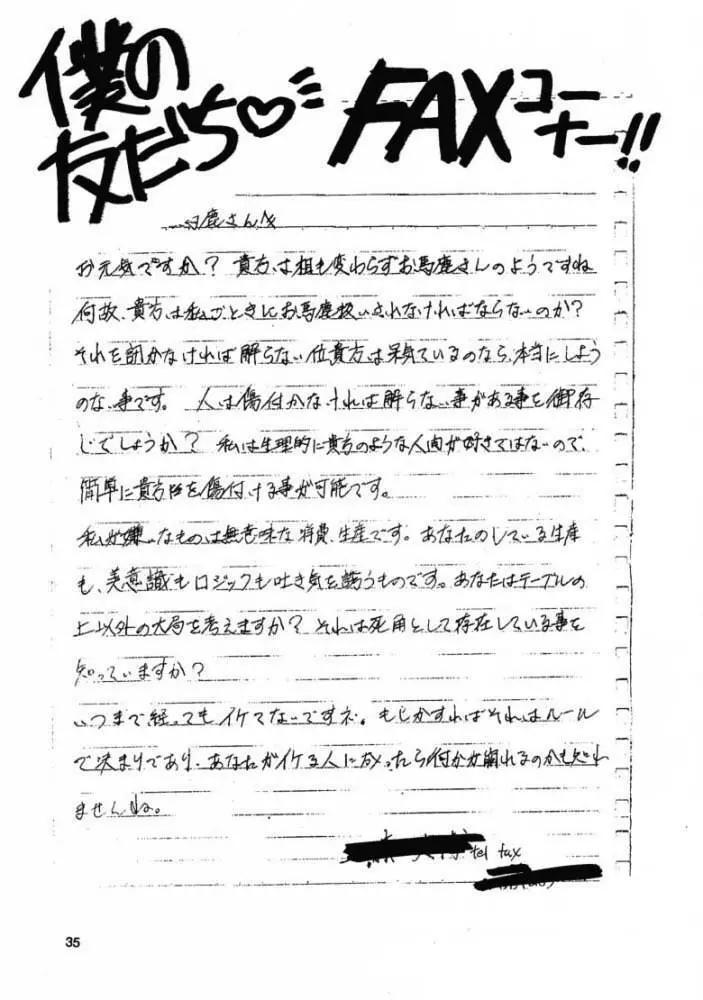 僕の
友だち♡
FAXコーナー!!
鹿さん江
お元気ですか? 貴方は相も変わらずお馬鹿さんのようですね
何故、貴方は私ごときにお馬鹿扱いされなければならないのか?
それを訊かなければ解らない位貴方は呆気ているのなら、本当にしよう
のない事です。 人は傷付かなければ解らない事がある事を御存
じでしょうか? 私は生理的に貴方のような人間が好きではないので、
簡単に貴方を傷付ける事が可能です。
私が嫌いなものは無意味な消費、生産です。あなたのしている生産
も、美意識もロジックも吐き気を誘うものです。あなたはテーブルの
上以外の大局を考えますか? それは死角として存在している事を
知っていますか?
いつまで経ってもイケてないですネ。もしかすればそれはルール
で決まりであり、あなたがイケる人になったら何かが崩れるのかも知れ
ませんね。
tel fax
35